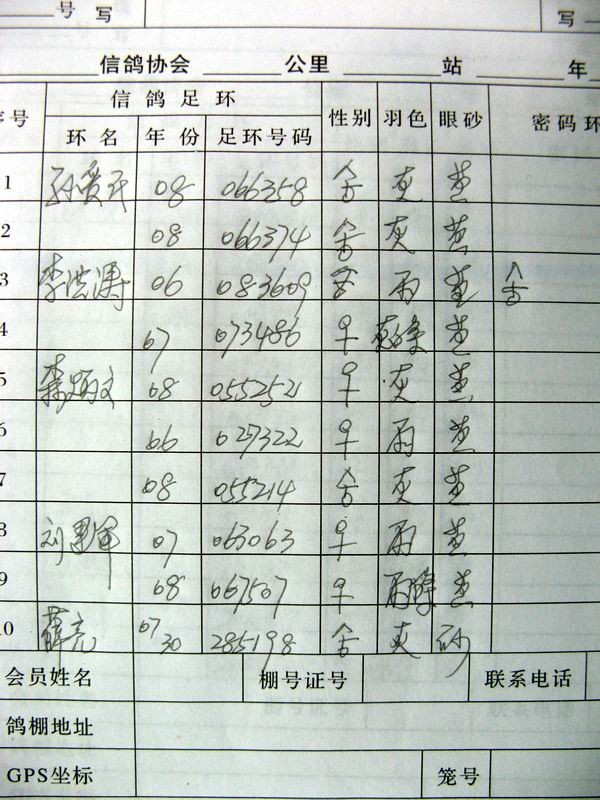 号 写 写
信鸽协会 公里 站 年
序号 信鸽足环 性别 羽色 眼砂 密码环
环名 年份 足环号码
1 孙爱民 08 066358 灰 黄
2 08 066374 灰 黄
3 李洪涛 06 083609 雨 黄 合
4 07 073486 ♀ 黄
5 08 0552521 ♀ 灰 黄
6 06 027322 ♀ 雨 黄
7 08 055214 灰 黄
8 刘 军 07 063063 ♀ 雨 黄
9 08 067507 ♀ 雨 黄
10 薛亮 07 30 285198 灰 砂
会员姓名 棚号证号 联系电话
鸽棚地址
GPS坐标 笼号